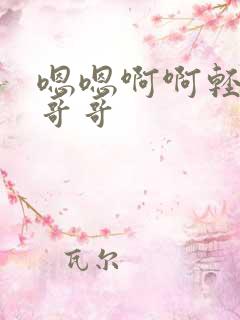 嗯嗯啊啊轻
哥哥
瓦尔